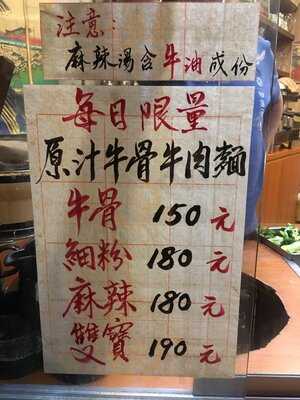 注意:
麻辣湯含牛油成份
每日限量
原汁牛骨牛肉麵
牛骨 150元
細粉 180元
麻辣 180元
雙寶 190元